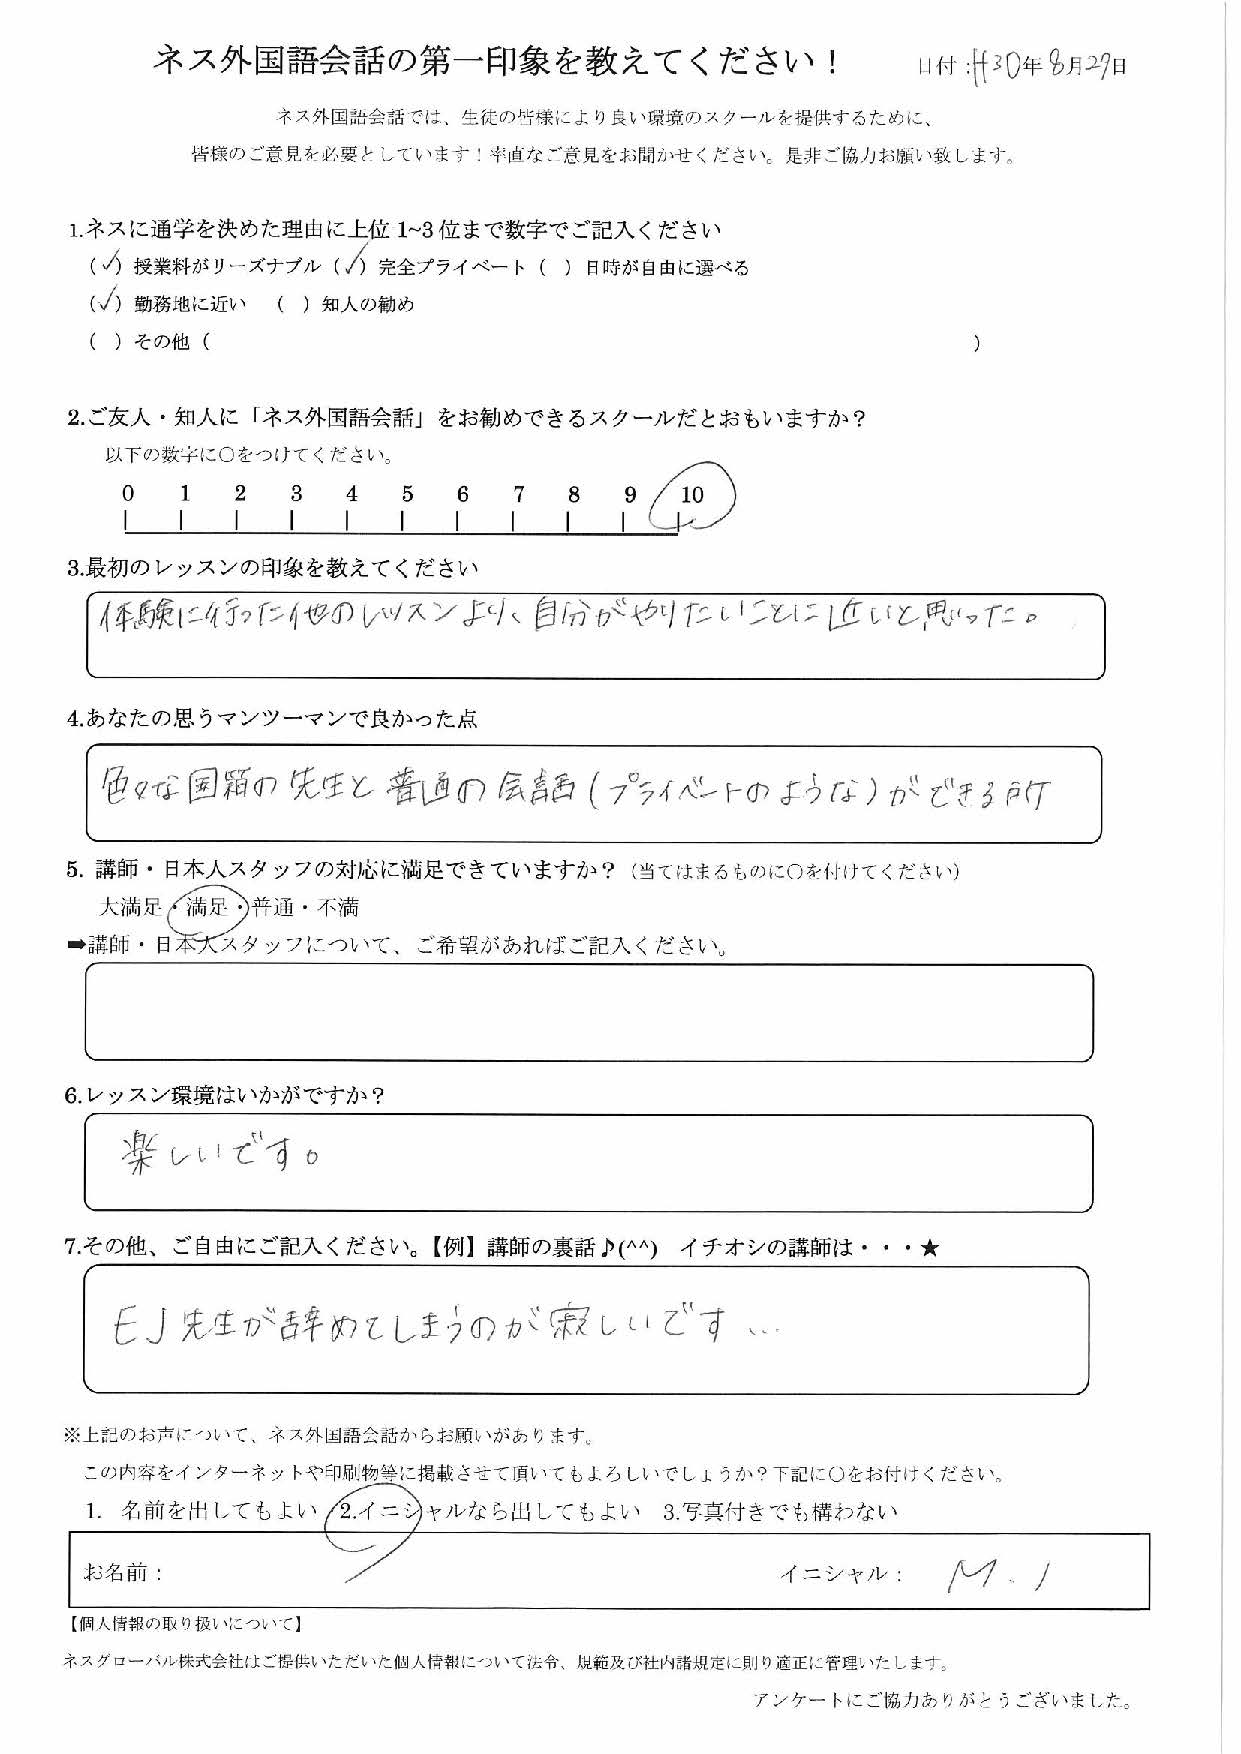 ネス外国語会話の第一印象を教えてください！
日付：H30年8月29日
ネス外国語会話では、生徒の皆様により良い環境のスクールを提供するために、
皆様のご意見を必要としています！率直なご意見をお聞かせください。是非ご協力お願い致します。
1.ネスに通学を決めた理由に上位 1~3 位まで数字でご記入ください
（✓）授業料がリーズナブル（✓）完全プライベート（ ）日時が自由に選べる
（✓）勤務地に近い （ ）知人の勧め
（ ）その他（ ）
2.ご友人・知人に「ネス外国語会話」をお勧めできるスクールだとおもいますか？
以下の数字に○をつけてください。
0 1 2 3 4 5 6 7 8 9 10
3.最初のレッスンの印象を教えてください
体験に行った他のレッスンより、自分がやりたいことに近いと思った。
4.あなたの思うマンツーマンで良かった点
色々な国籍の先生と普通の会話(プライベートのような)ができる所
5. 講師・日本人スタッフの対応に満足できていますか？（当てはまるものに○を付けてください）
大満足・満足・普通・不満
➡講師・日本人スタッフについて、ご希望があればご記入ください。
6.レッスン環境はいかがですか？
楽しいです。
7.その他、ご自由にご記入ください。【例】講師の裏話♪(^^) イチオシの講師は・・・★
EJ先生が辞めてしまうのが寂しいです…
※上記のお声について、ネス外国語会話からお願いがあります。
この内容をインターネットや印刷物等に掲載させて頂いてもよろしいでしょうか？下記に○をお付けください。
1. 名前を出してもよい 2.イニシャルなら出してもよい 3.写真付きでも構わない
お名前： イニシャル： M.I
【個人情報の取り扱いについて】
ネスグローバル株式会社はご提供いただいた個人情報について法令、規範及び社内諸規定に則り適正に管理いたします。
アンケートにご協力ありがとうございました。